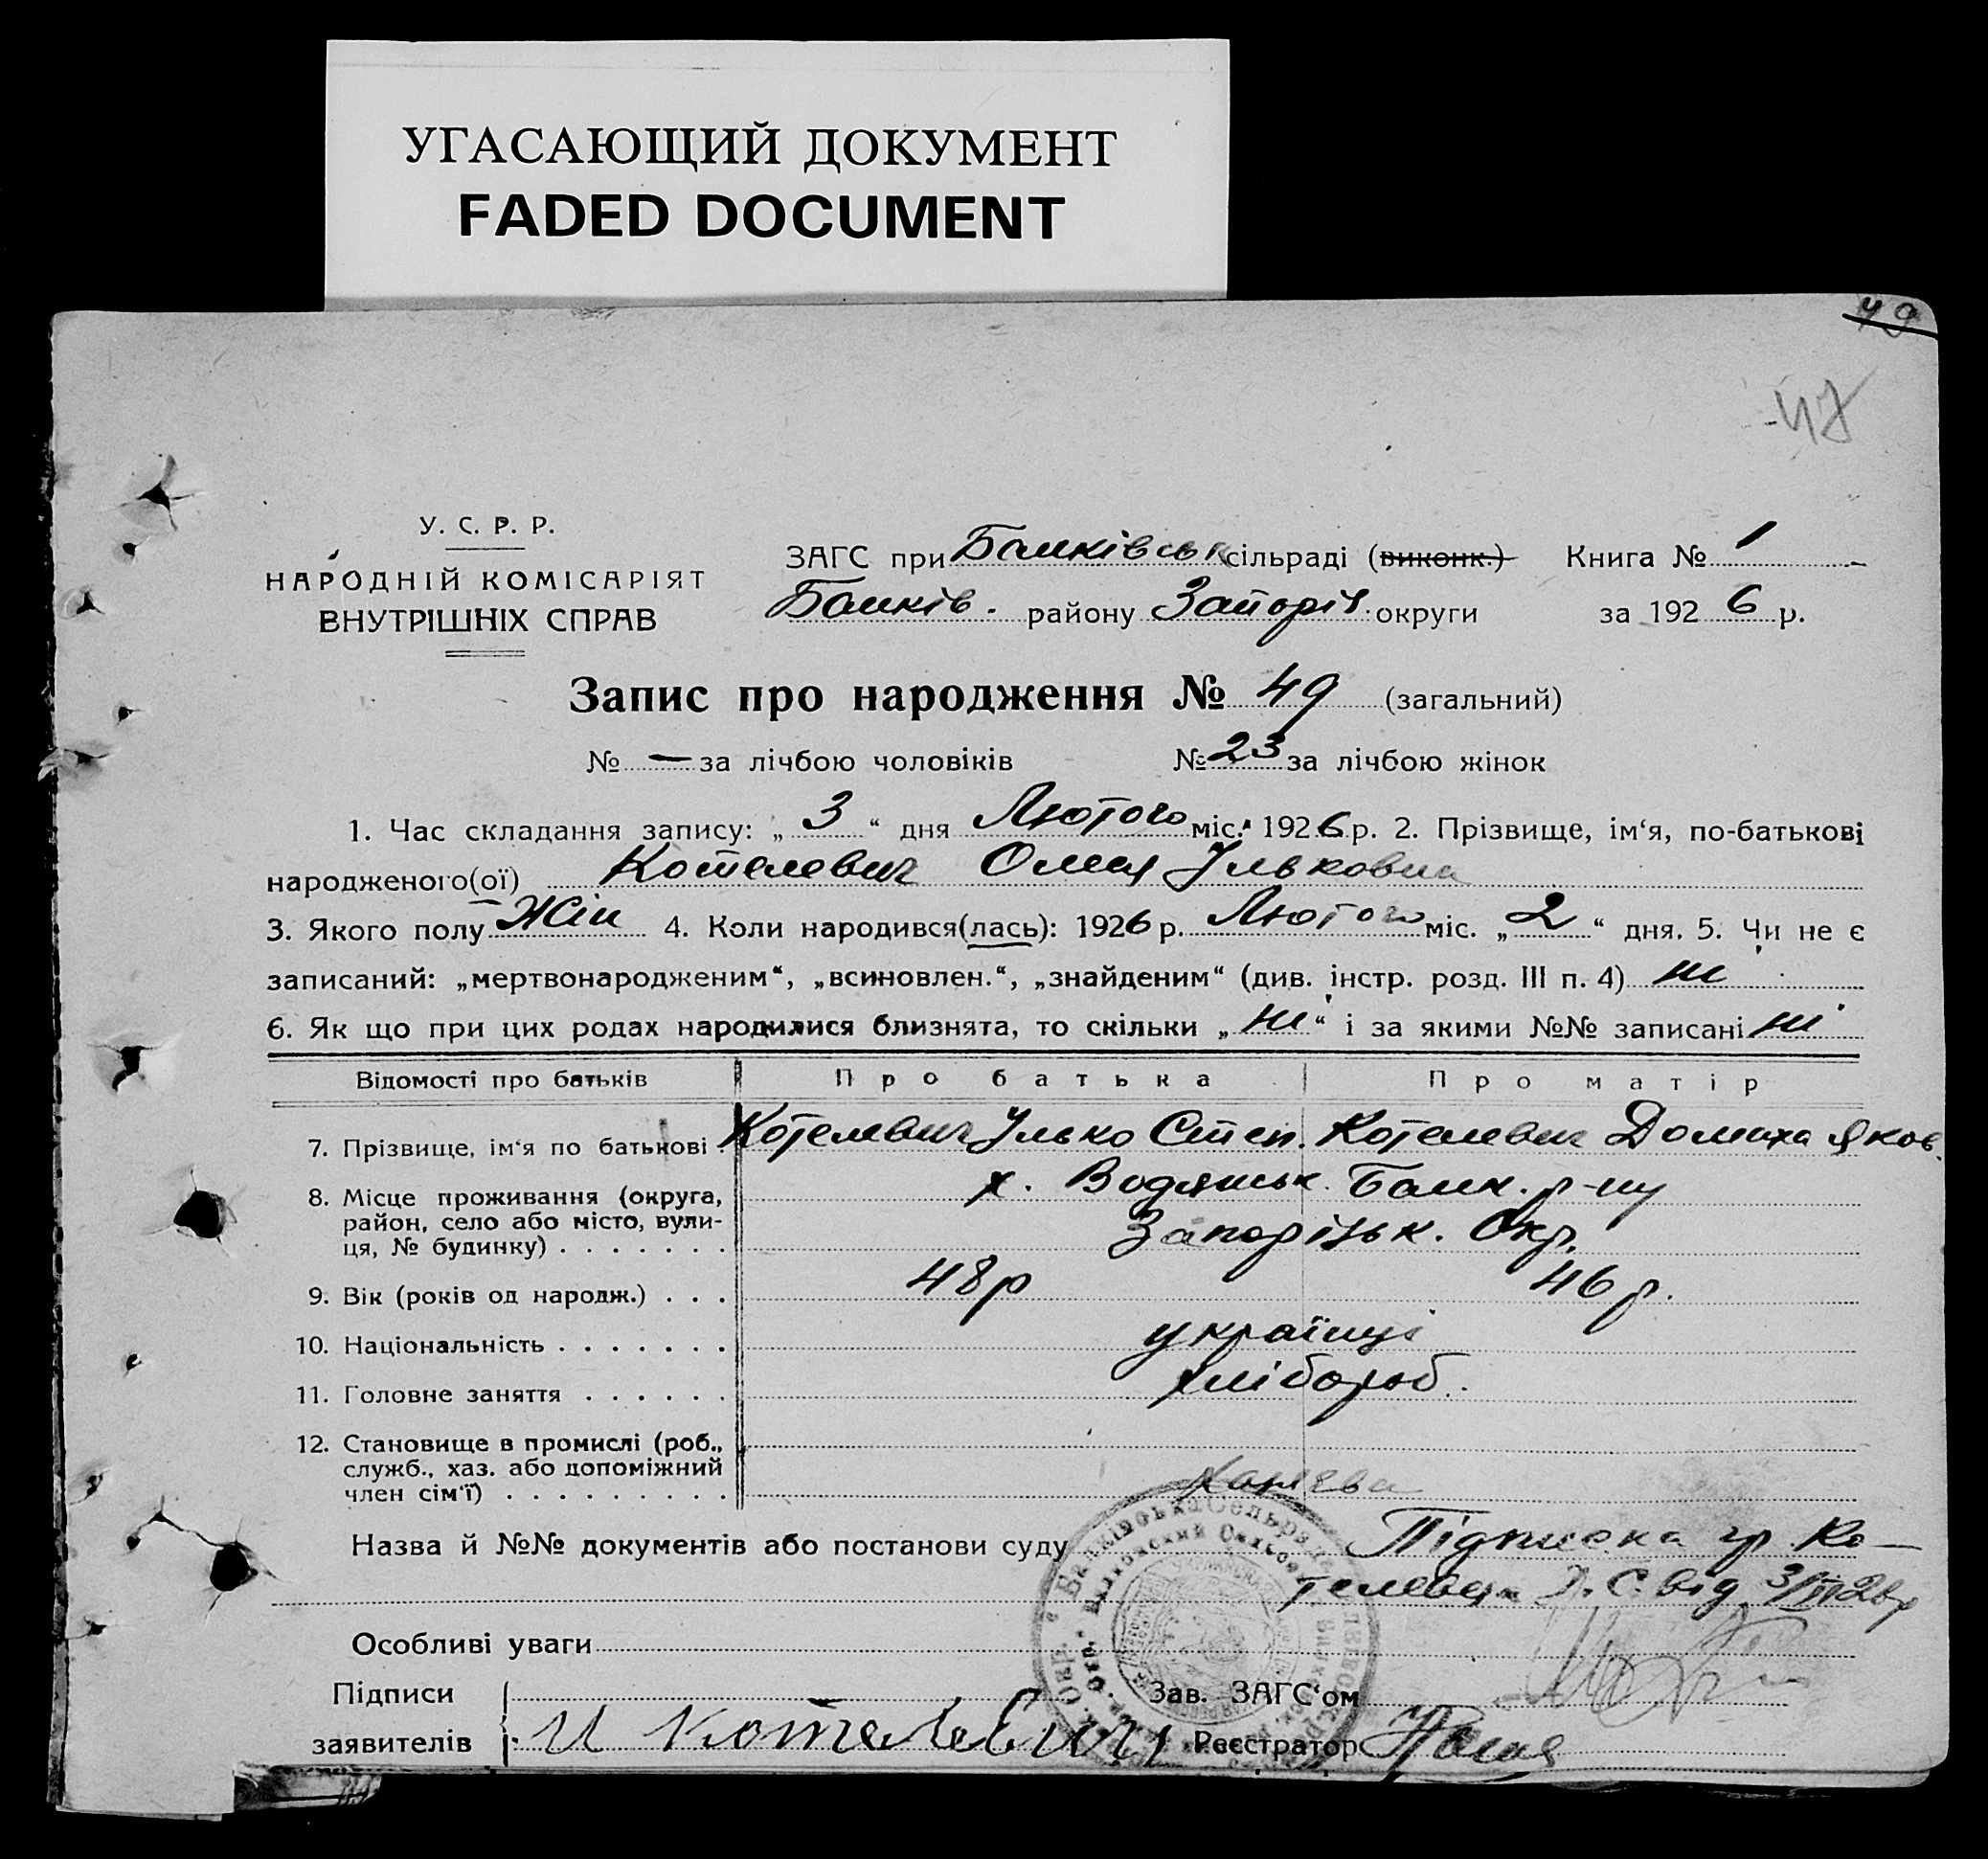 УГАСАЮЩИЙ ДОКУМЕНТ
FADED DOCUMENT
49
47
У. С. Р. Р.
НАРОДНІЙ КОМІСАРІЯТ
ВНУТРІШНІХ СПРАВ
ЗАГС при Балківськ сільраді (виконк.) Книга № 1
Балків. району Запоріз. округи за 1926 р.
Запис про народження № 49 (загальний)
№ — за лічбою чоловіків № 23 за лічбою жінок
1. Час складання запису: „3“ дня Лютого міс. 1926 р. 2. Прізвище, ім‘я, по-батькові
народженого(ої) Котелевич Олія Ульковна
3. Якого полу Жін 4. Коли народився(лась): 1926 р. Лютого міс. „2“ дня. 5. Чи не є
записаний: „мертвонародженим“, „всиновлен.“, „знайденим“ (див. інстр. розд. III п. 4) ні
6. Як що при цих родах народилися близнята, то скільки „ні“ і за якими №№ записані ні
Відомості про батьків Про батька Про матір
7. Прізвище, ім‘я по батькові . Котелевич Улько Степ. Котелевич Домаха Яков.
8. Місце проживання (округа, х. Водянськ. Балк. р-ну
район, село або місто, вули-
ця, № будинку) . . . . . . . Запорізьк. Окр.
9. Вік (років од народж.) . . . 48 р 46 р.
10. Національність . . . . . . . українці
11. Головне заняття . . . . . . хлібороб.
12. Становище в промислі (роб.,
служб., хаз. або допоміжний
член сім‘ї) . . . . . . . . .
Назва й №№ документів або постанови суду Підписка гр. Ко-
телевич С. від 3/II 26 р
Особливі уваги
Підписи Зав. ЗАГС‘ом
заявителів И Котелевич Реєстратор